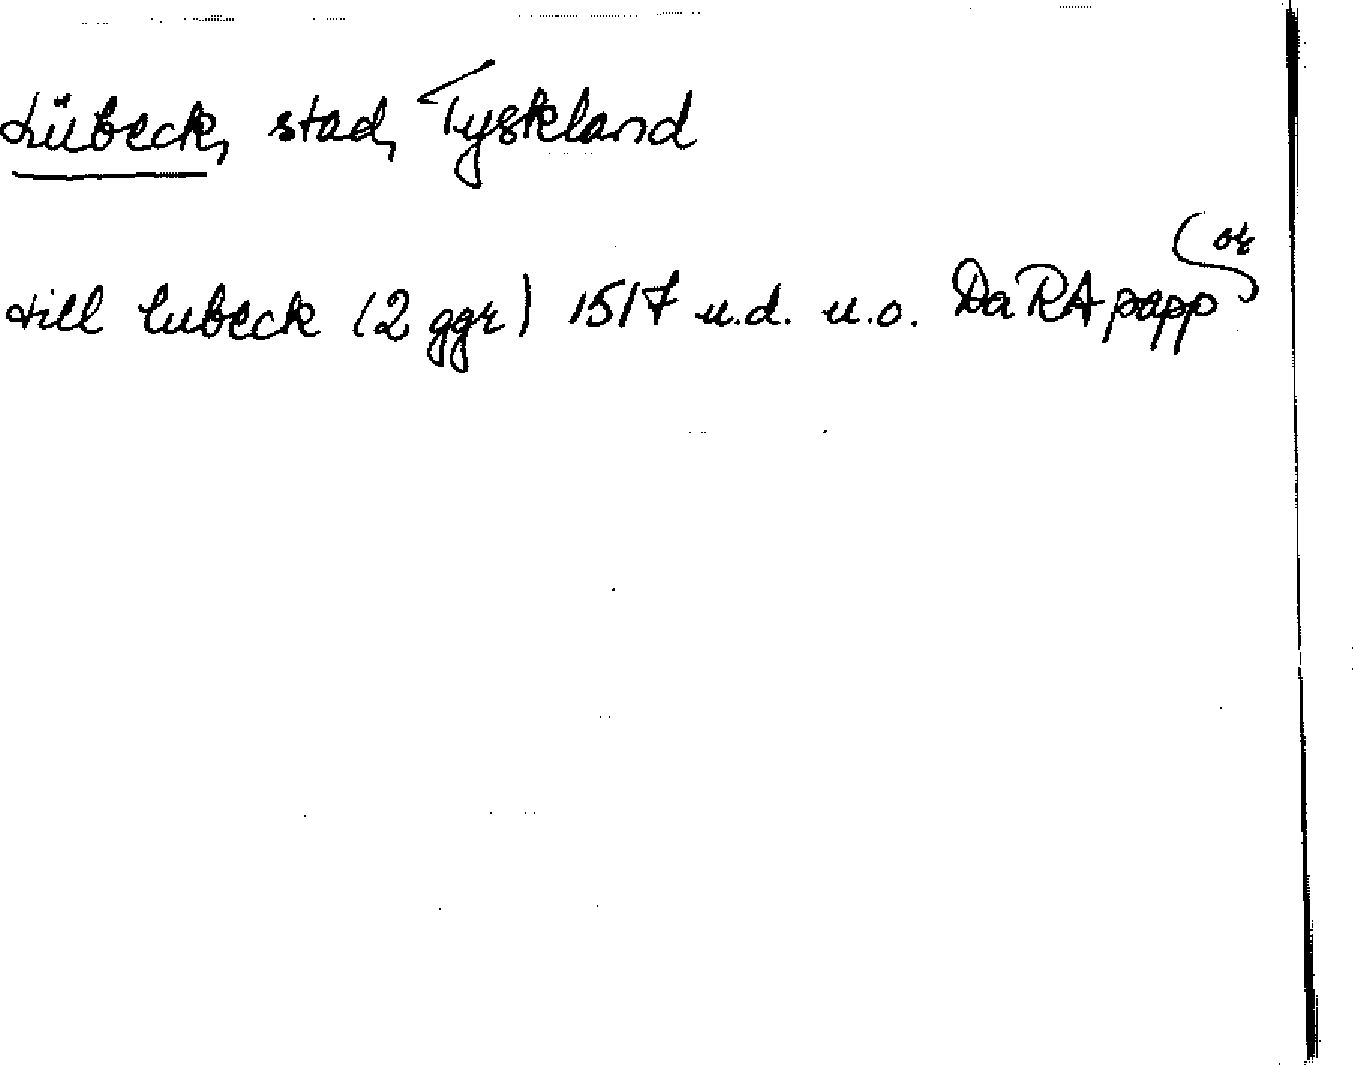 Lübeck, stad, Tyskland
till lubeck (2 ggr) 1517 u.d. u.o. DaRA papp or